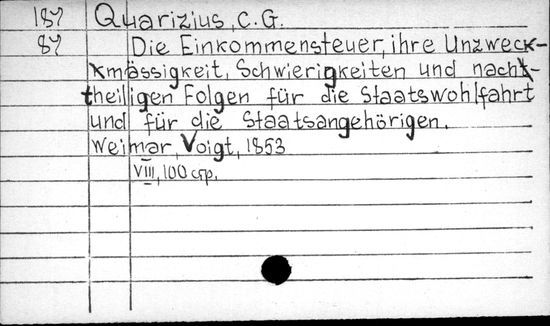 187 Quarizius, C.G.
87 Die Einkommensteuer, ihre Unzweck-
mässigkeit, Schwierigkeiten und nach-
theiligen Folgen für die Staatswohlfahrt
und für die Staatsangehörigen.
Weimar, Voigt, 1853
VIII, 100 p.